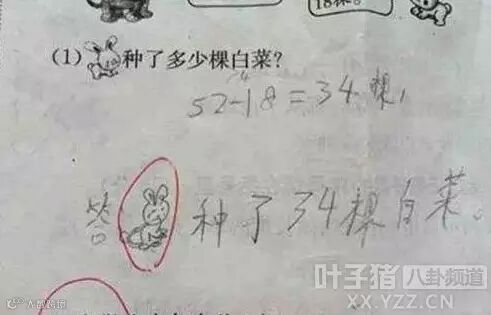 18棵。
(1) 种了多少棵白菜?
52-18=34棵,
答 种了34棵白菜。
叶子猪 八卦频道
XX.YZZ.CN